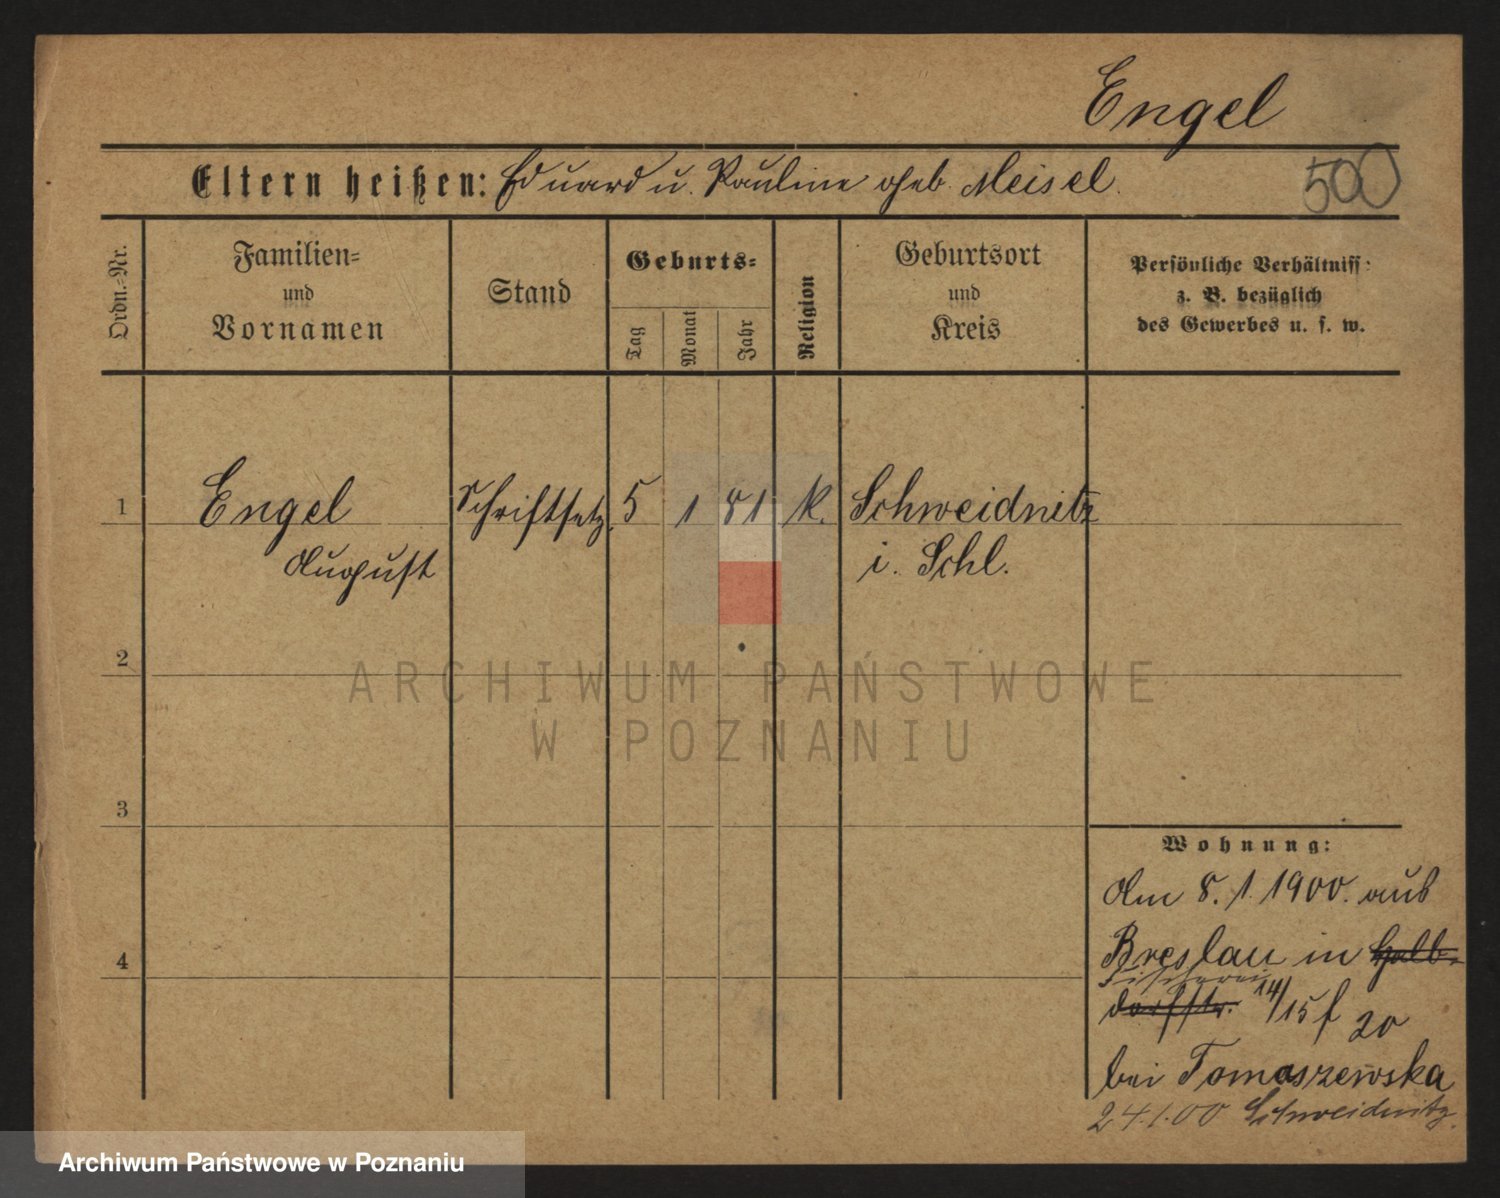 Engel
Eltern heißen: Eduard u. Pauline geb. Meisel.
500
Ordn.-Nr.
Familien-
und
Vornamen
Stand
Geburts-
Tag
Monat
Jahr
Religion
Geburtsort
und
Kreis
Persönliche Verhältniss
z. B. bezüglich
des Gewerbes u. s. w.
1 Engel Schriftsetz. 5 1 81 k. Schweidnitz
August i. Schl.
2
3
4
Wohnung:
Am 8. 1. 1900. aus
Breslau in Halb-
Fischerei
dorfstr. 14/15 f 20
bei Tomaszewska
24.1.00 Schweidnitz.
ARCHIWUM PAŃSTWOWE
W POZNANIU
Archiwum Państwowe w Poznaniu